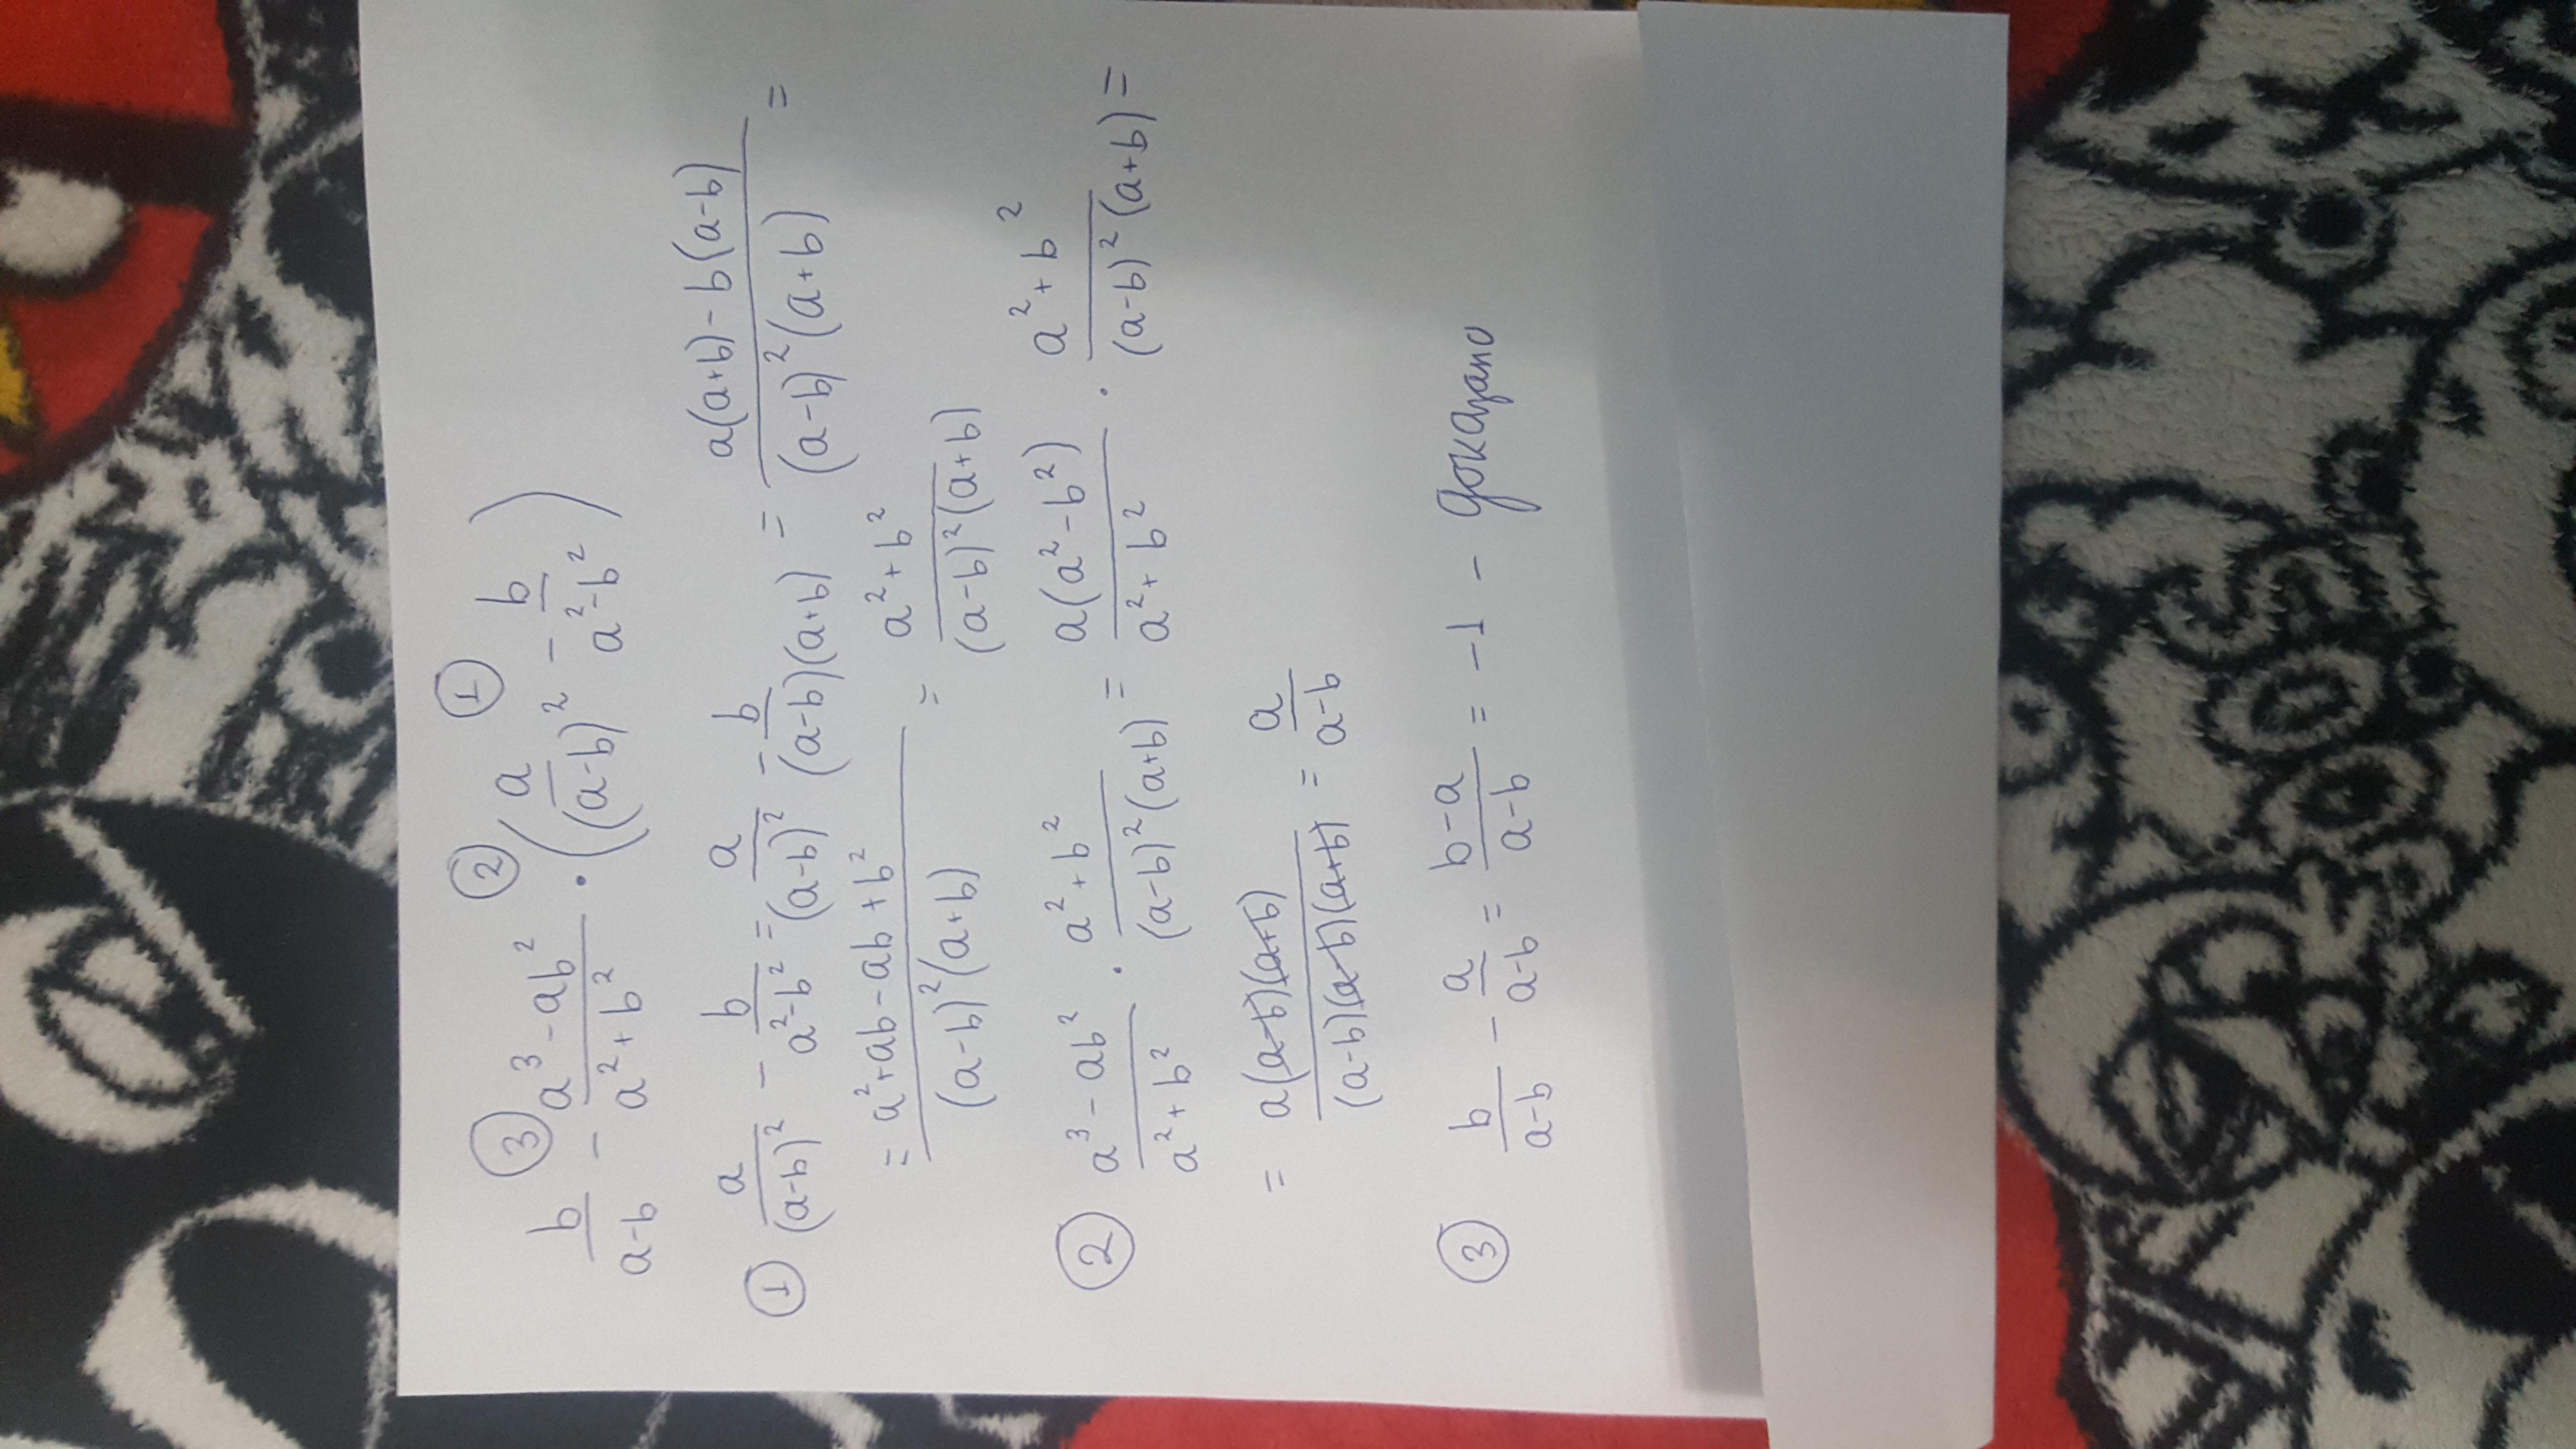 ③ ② ①
b/(a-b) - (a³-ab²)/(a²+b²) · (a/(a-b)² - b/(a²-b²))
① a/(a-b)² - b/(a²-b²) = a/(a-b)² - b/((a-b)(a+b)) = (a(a+b)-b(a-b))/((a-b)²(a+b)) =
= (a²+ab-ab+b²)/((a-b)²(a+b)) = (a²+b²)/((a-b)²(a+b))
② (a³-ab²)/(a²+b²) · (a²+b²)/((a-b)²(a+b)) = (a(a²-b²))/(a²+b²) · (a²+b²)/((a-b)²(a+b)) =
= (a(a-b)(a+b))/((a-b)(a-b)(a+b)) = a/(a-b)
③ b/(a-b) - a/(a-b) = (b-a)/(a-b) = -1 - доказано